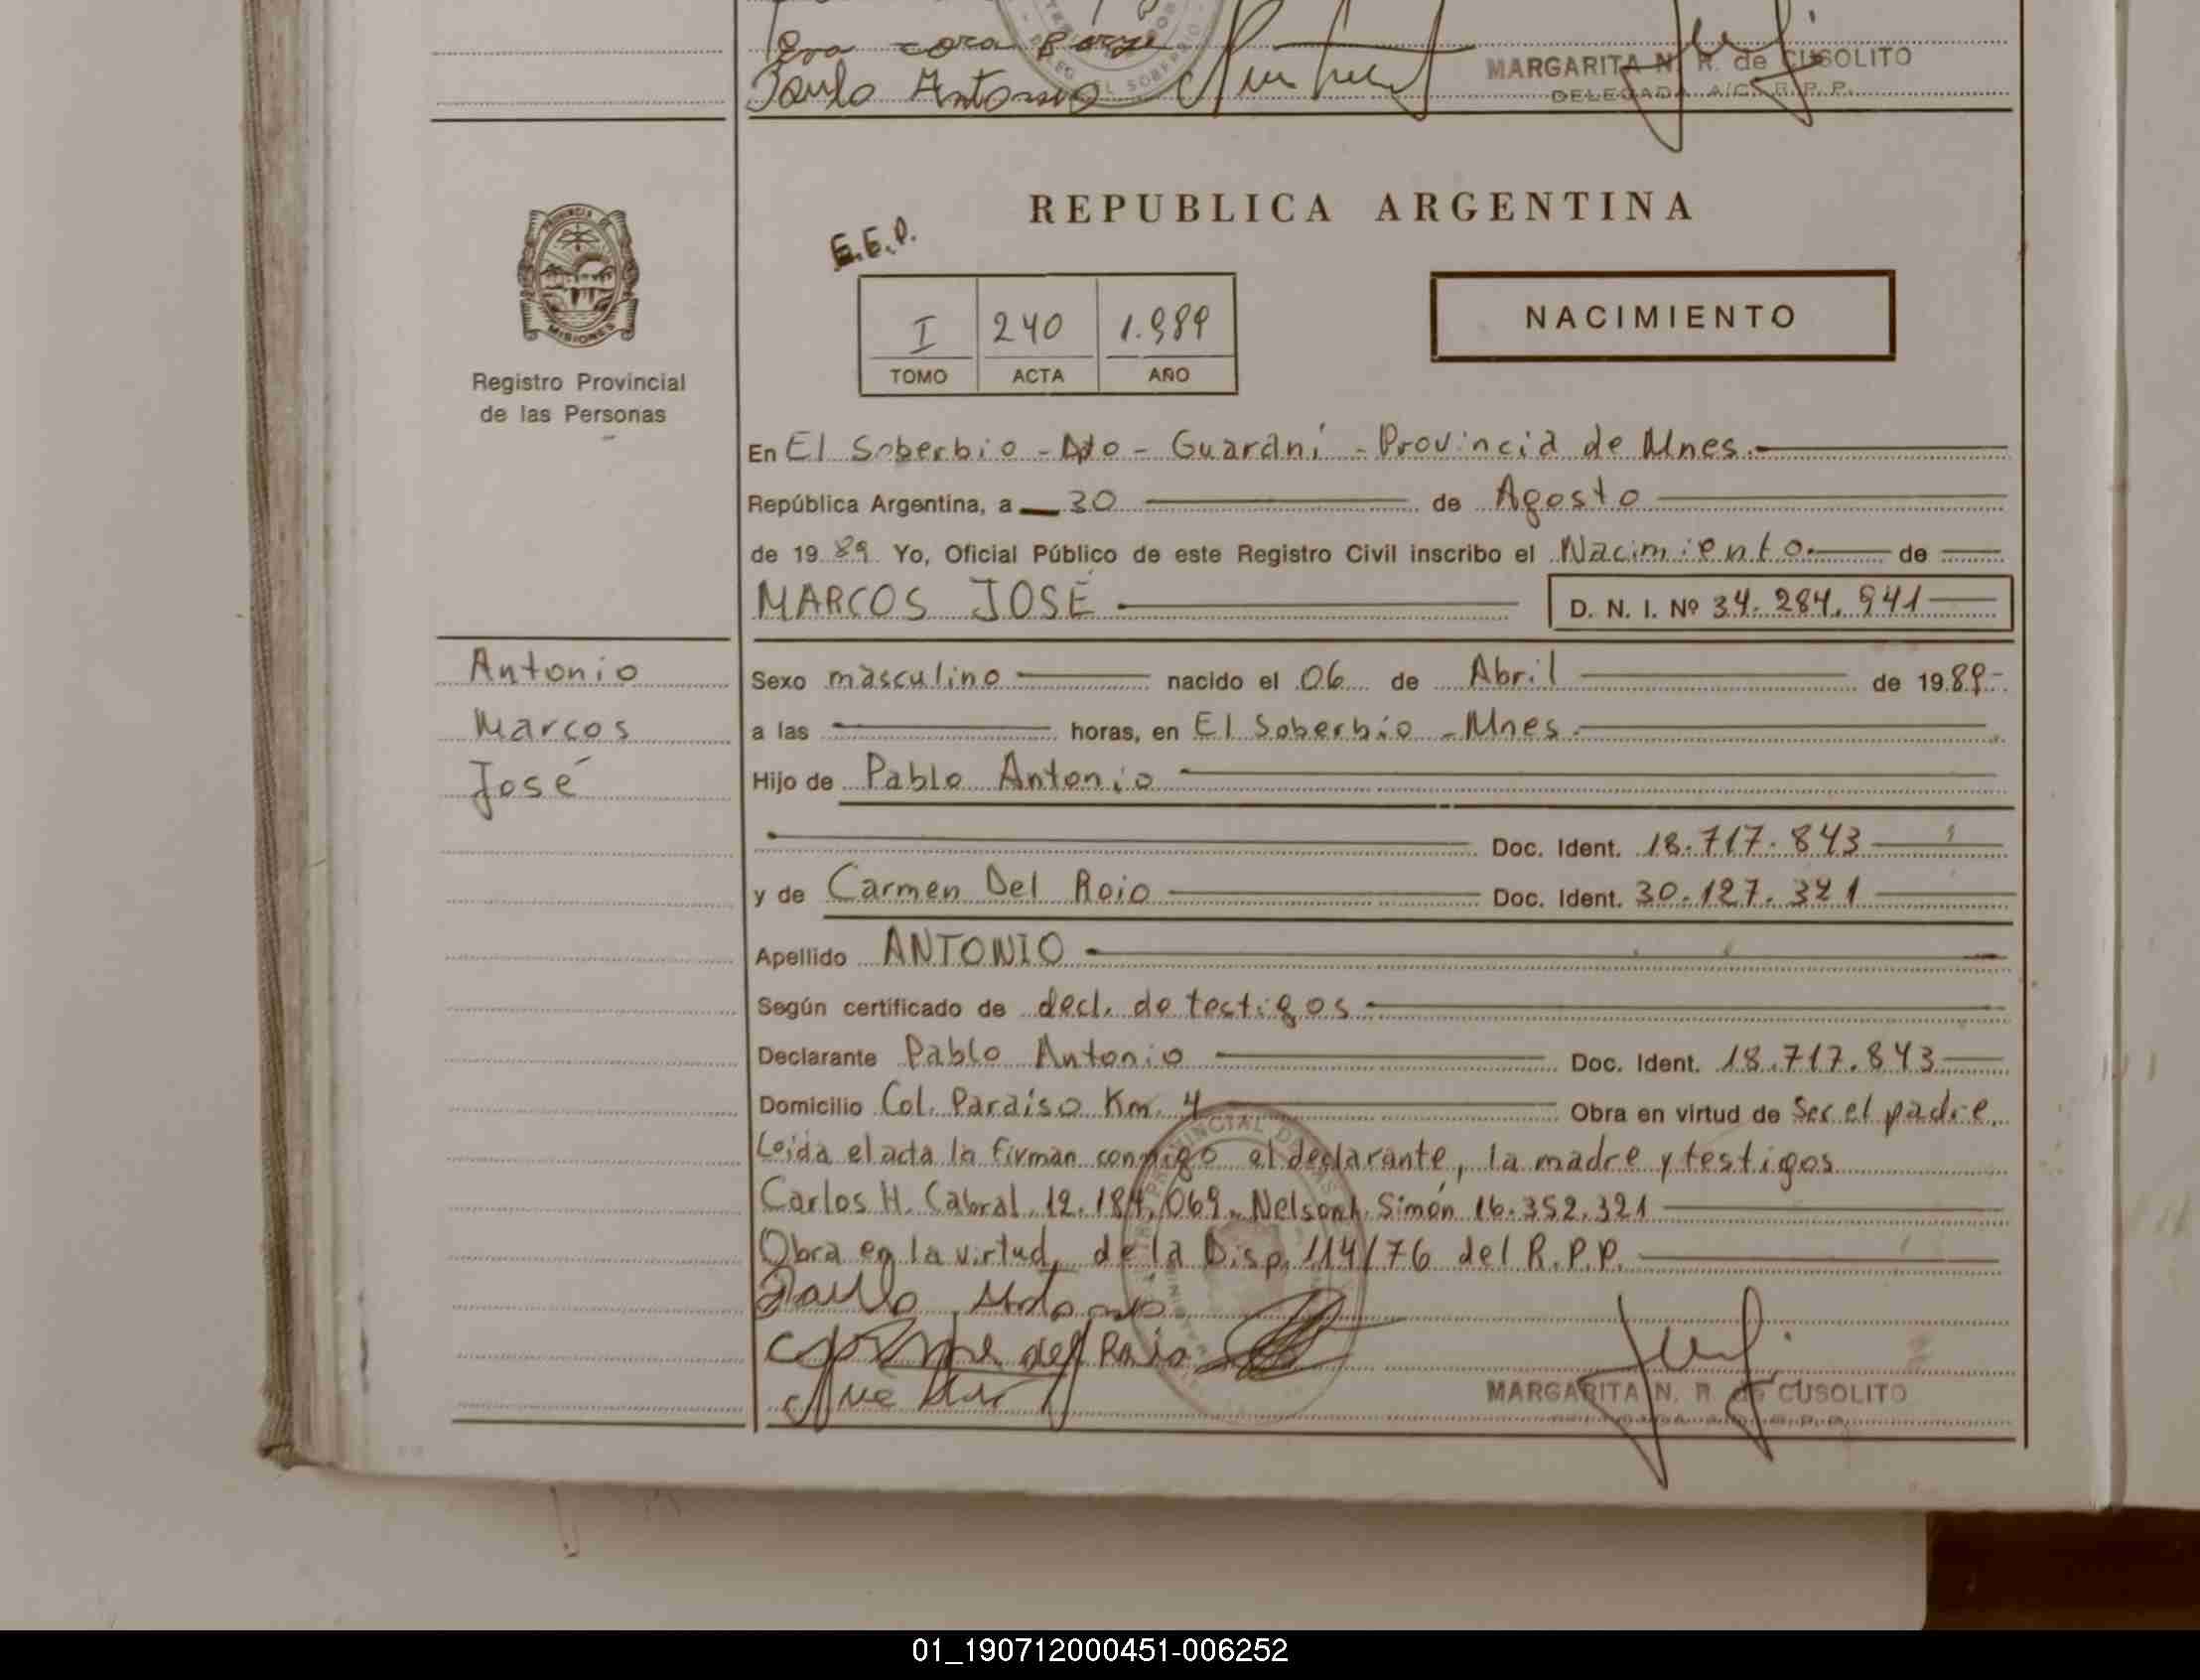 Paulo Antonio
MARGARITA N. R. de CUSOLITO
DELEGADA A/C. R. P. P.
PROVINCIA DE
MISIONES
Registro Provincial
de las Personas
REPUBLICA ARGENTINA
E.E.P.
I 240 1.989
TOMO ACTA AÑO
NACIMIENTO
En El Soberbio - Dpto - Guaraní - Provincia de Mnes.
República Argentina, a 30 de Agosto
de 1989 Yo, Oficial Público de este Registro Civil inscribo el Nacimiento de
MARCOS JOSÉ D. N. I. Nº 34.284.941
Antonio
Marcos
José
Sexo masculino nacido el 06 de Abril de 1989-
a las horas, en El Soberbio - Mnes.
Hijo de Pablo Antonio
Doc. Ident. 18.717.843
y de Carmen Del Roio Doc. Ident. 30.127.321
Apellido ANTONIO
Según certificado de decl. de testigos
Declarante Pablo Antonio Doc. Ident. 18.717.843
Domicilio Col. Paraiso Km. 4 Obra en virtud de Ser el padre.
Leida el acta la firman conmigo el declarante, la madre y testigos
Carlos H. Cabral 12.184.069. Nelson h. Simón 16.352.321
Obra en la virtud de la Disp. 114/76 del R.P.P.
Paulo Antonio
del Raio
MARGARITA N. R. de CUSOLITO
01_190712000451-006252